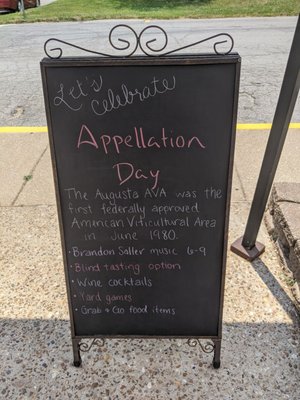 Let's
Celebrate
Appellation
Day
The Augusta AVA was the
first federally approved
American Viticultural Area
in June 1980.
• Brandon Saller music 6-9
• Blind tasting option
• Wine cocktails
• Yard games
• Grab & Go food items